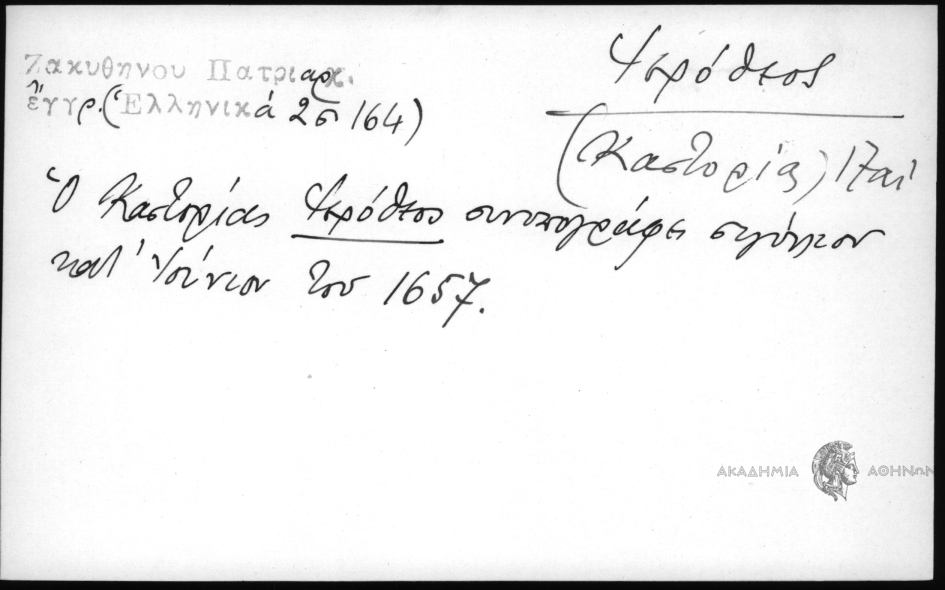 Ζακυθηνου Πατριαρχ.
ἔγγρ. (Ἑλληνικά 2σ 164)
Ἱερόθεος
(Καστορίας) 17 αἰ
Ὁ Καστορίας Ἱερόθεος συνυπογράφει σιγίλλιον
κατ' Ἰούνιον του 1657.
ΑΚΑΔΗΜΙΑ ΑΘΗΝΩΝ